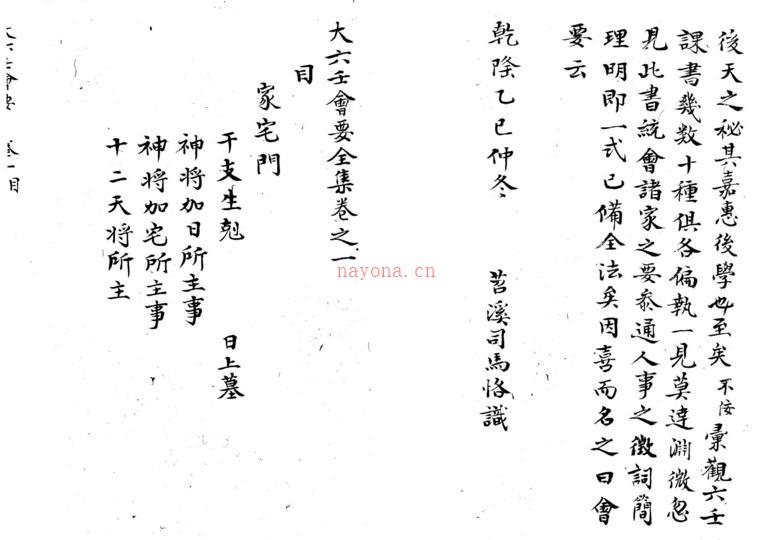 後天之秘其嘉惠後學也至矣不佞彙觀六壬
課書幾数十種俱各偏執一見莫達淵微忽
見此書統會諸家之要叅通人事之徵詞簡
理明即一式已備全法矣因喜而名之曰會
要云
乾隆乙巳仲冬 苕溪司馬恪識
大六壬會要全集卷之一
目
家宅門
干支生尅 日上墓
神將加日所主事
神將加宅所主事
十二天将所主
大六壬會要 卷一目
nayona.cn